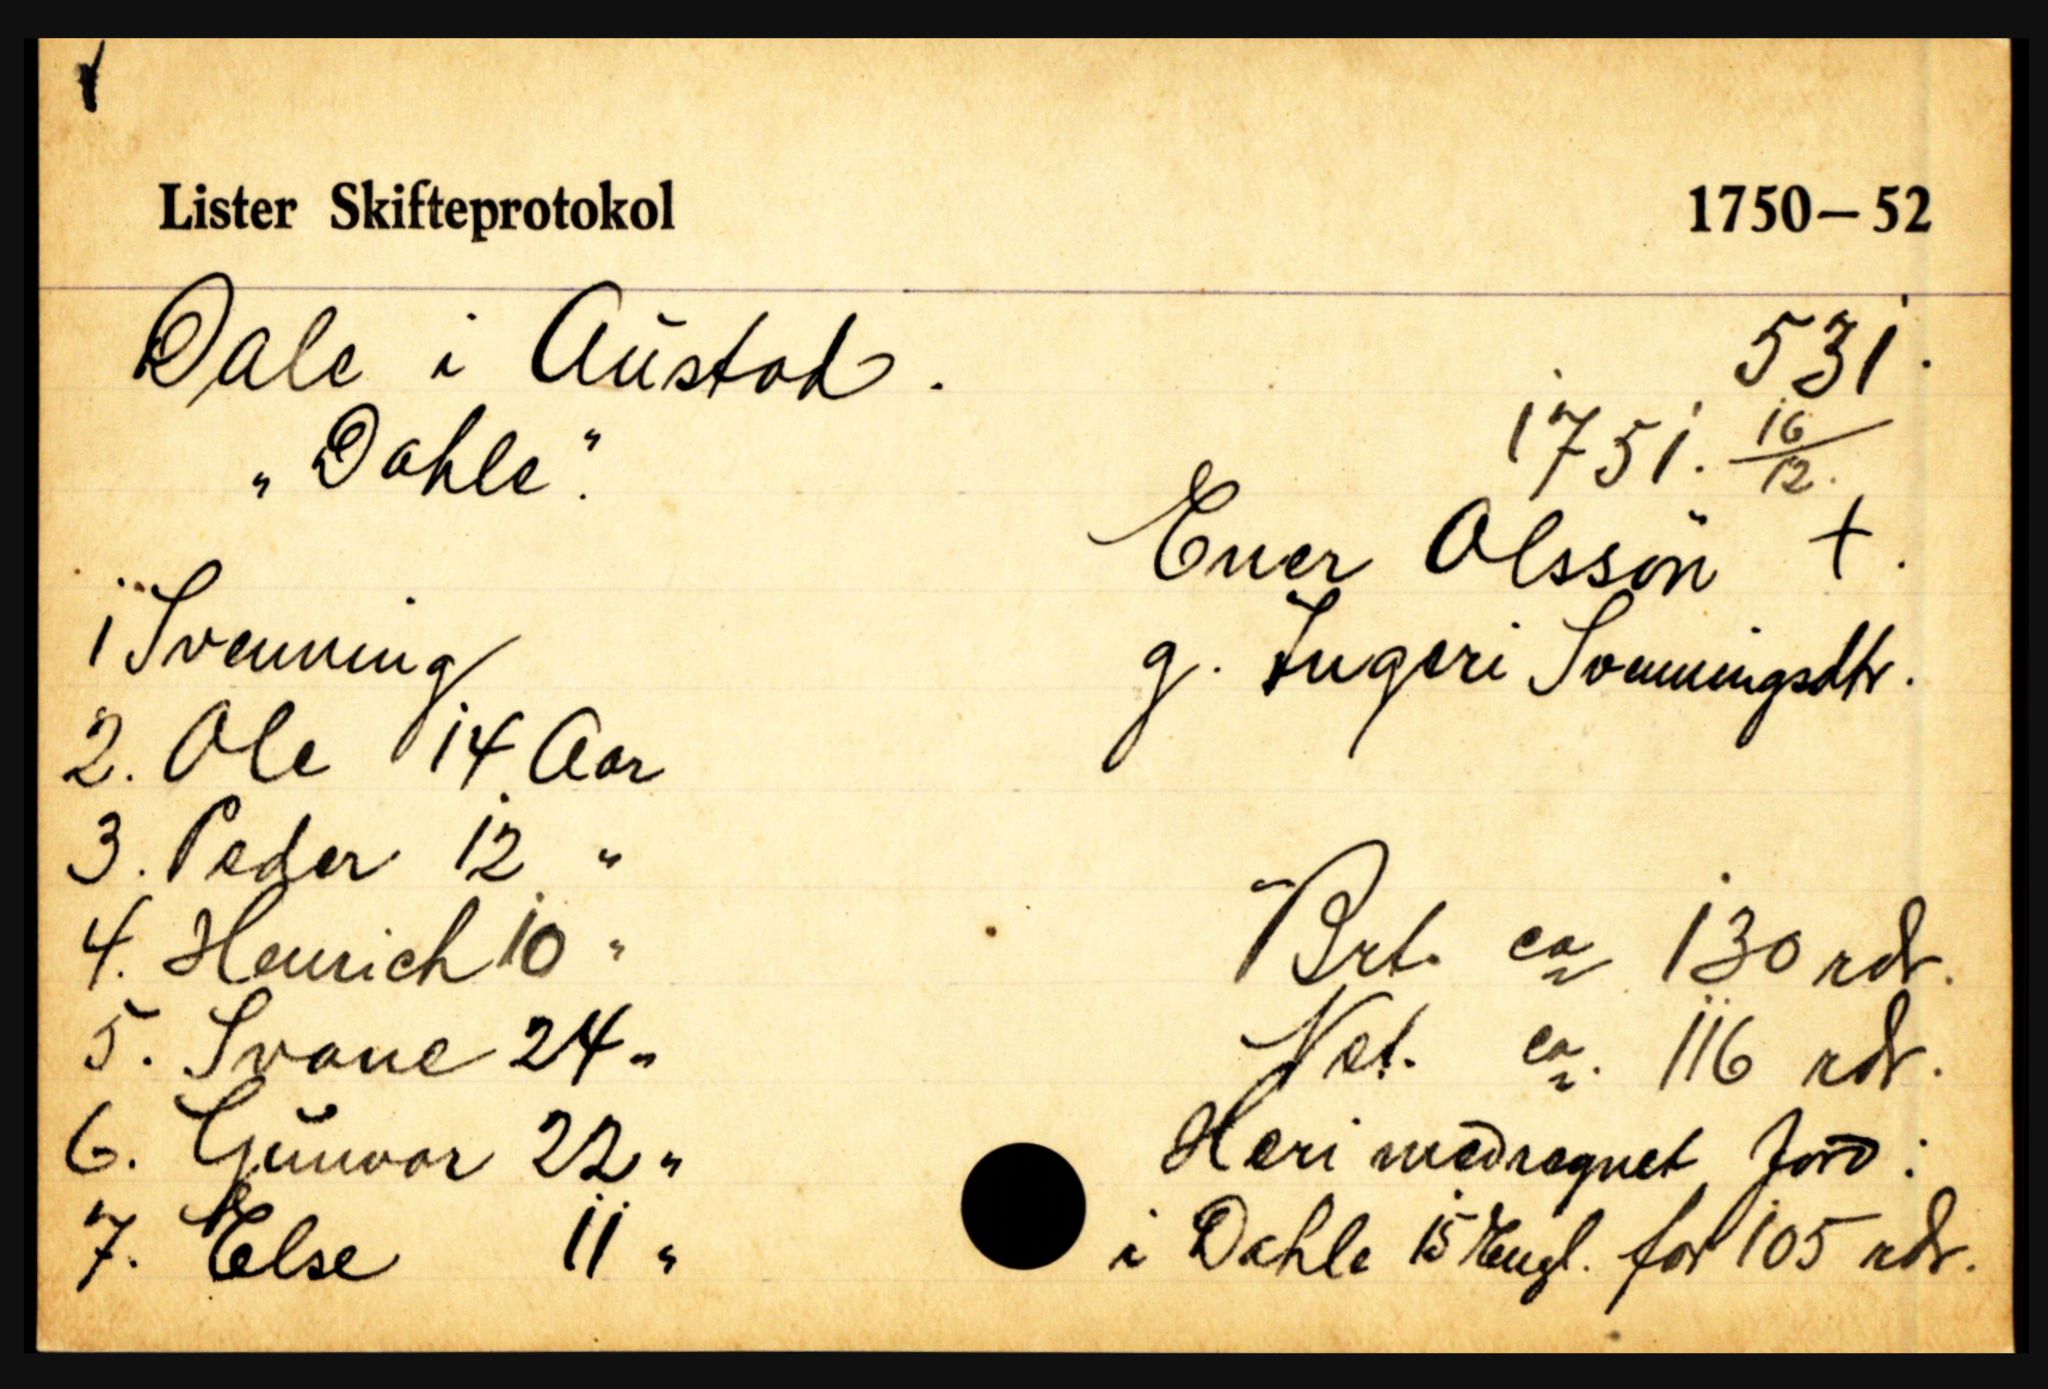 Lister Skifteprotokol 1750–52
Dale i Austad. 531.
„Dahle". 1751. 16/12.
Ener Olsson +.
1 Svenning g. Ingeri Svenningsdtr.
2. Ole 14 Aar
3. Peder 12 "
4. Henrich 10 " Brt. ca 130 rdr.
5. Svane 24 " Net. ca. 116 rdr.
6. Gunvor 22 " Heri medregnet Jord:
7. Else 11 " i Dahle 15 Engl. for 105 rdr.